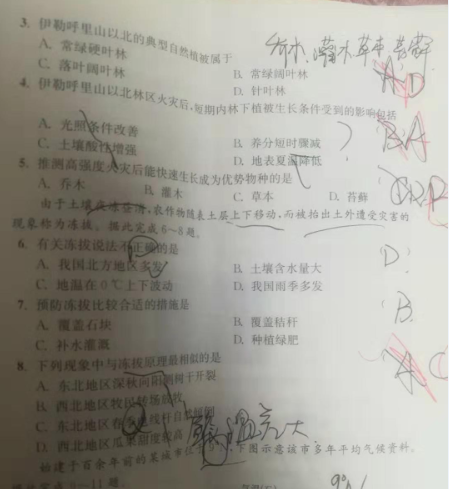 3. 伊勒呼里山以北的典型自然植被属于
乔木、灌木 草本 苔藓
A. 常绿硬叶林
B. 常绿阔叶林
C. 落叶阔叶林
D. 针叶林
4. 伊勒呼里山以北林区火灾后,短期内林下植被生长条件受到的影响包括
A. 光照条件改善
B. 养分短时骤减
C. 土壤酸性增强
D. 地表夏温降低
5. 推测高强度火灾后能快速生长成为优势物种的是
A. 乔木
B. 灌木
C. 草本
D. 苔藓
由于土壤反复冻融,农作物随表土层上下移动,而被抬出土外遭受灾害的
现象称为冻拔。据此完成6~8题。
6. 有关冻拔说法不正确的是
A. 我国北方地区多发
B. 土壤含水量大
D.
C. 地温在0℃上下波动
D. 我国雨季多发
7. 预防冻拔比较合适的措施是
B.
A. 覆盖石块
B. 覆盖秸秆
C. 补水灌溉
D. 种植绿肥
8. 下列现象中与冻拔原理最相似的是
A. 东北地区深秋向阳侧树干开裂
B. 西北地区牧民转场放牧
C. 东北地区春
D. 西北地区瓜果甜度较高
下图示意该市多年平均气候资料。
始建于百余年前的某城市位
9~11题。